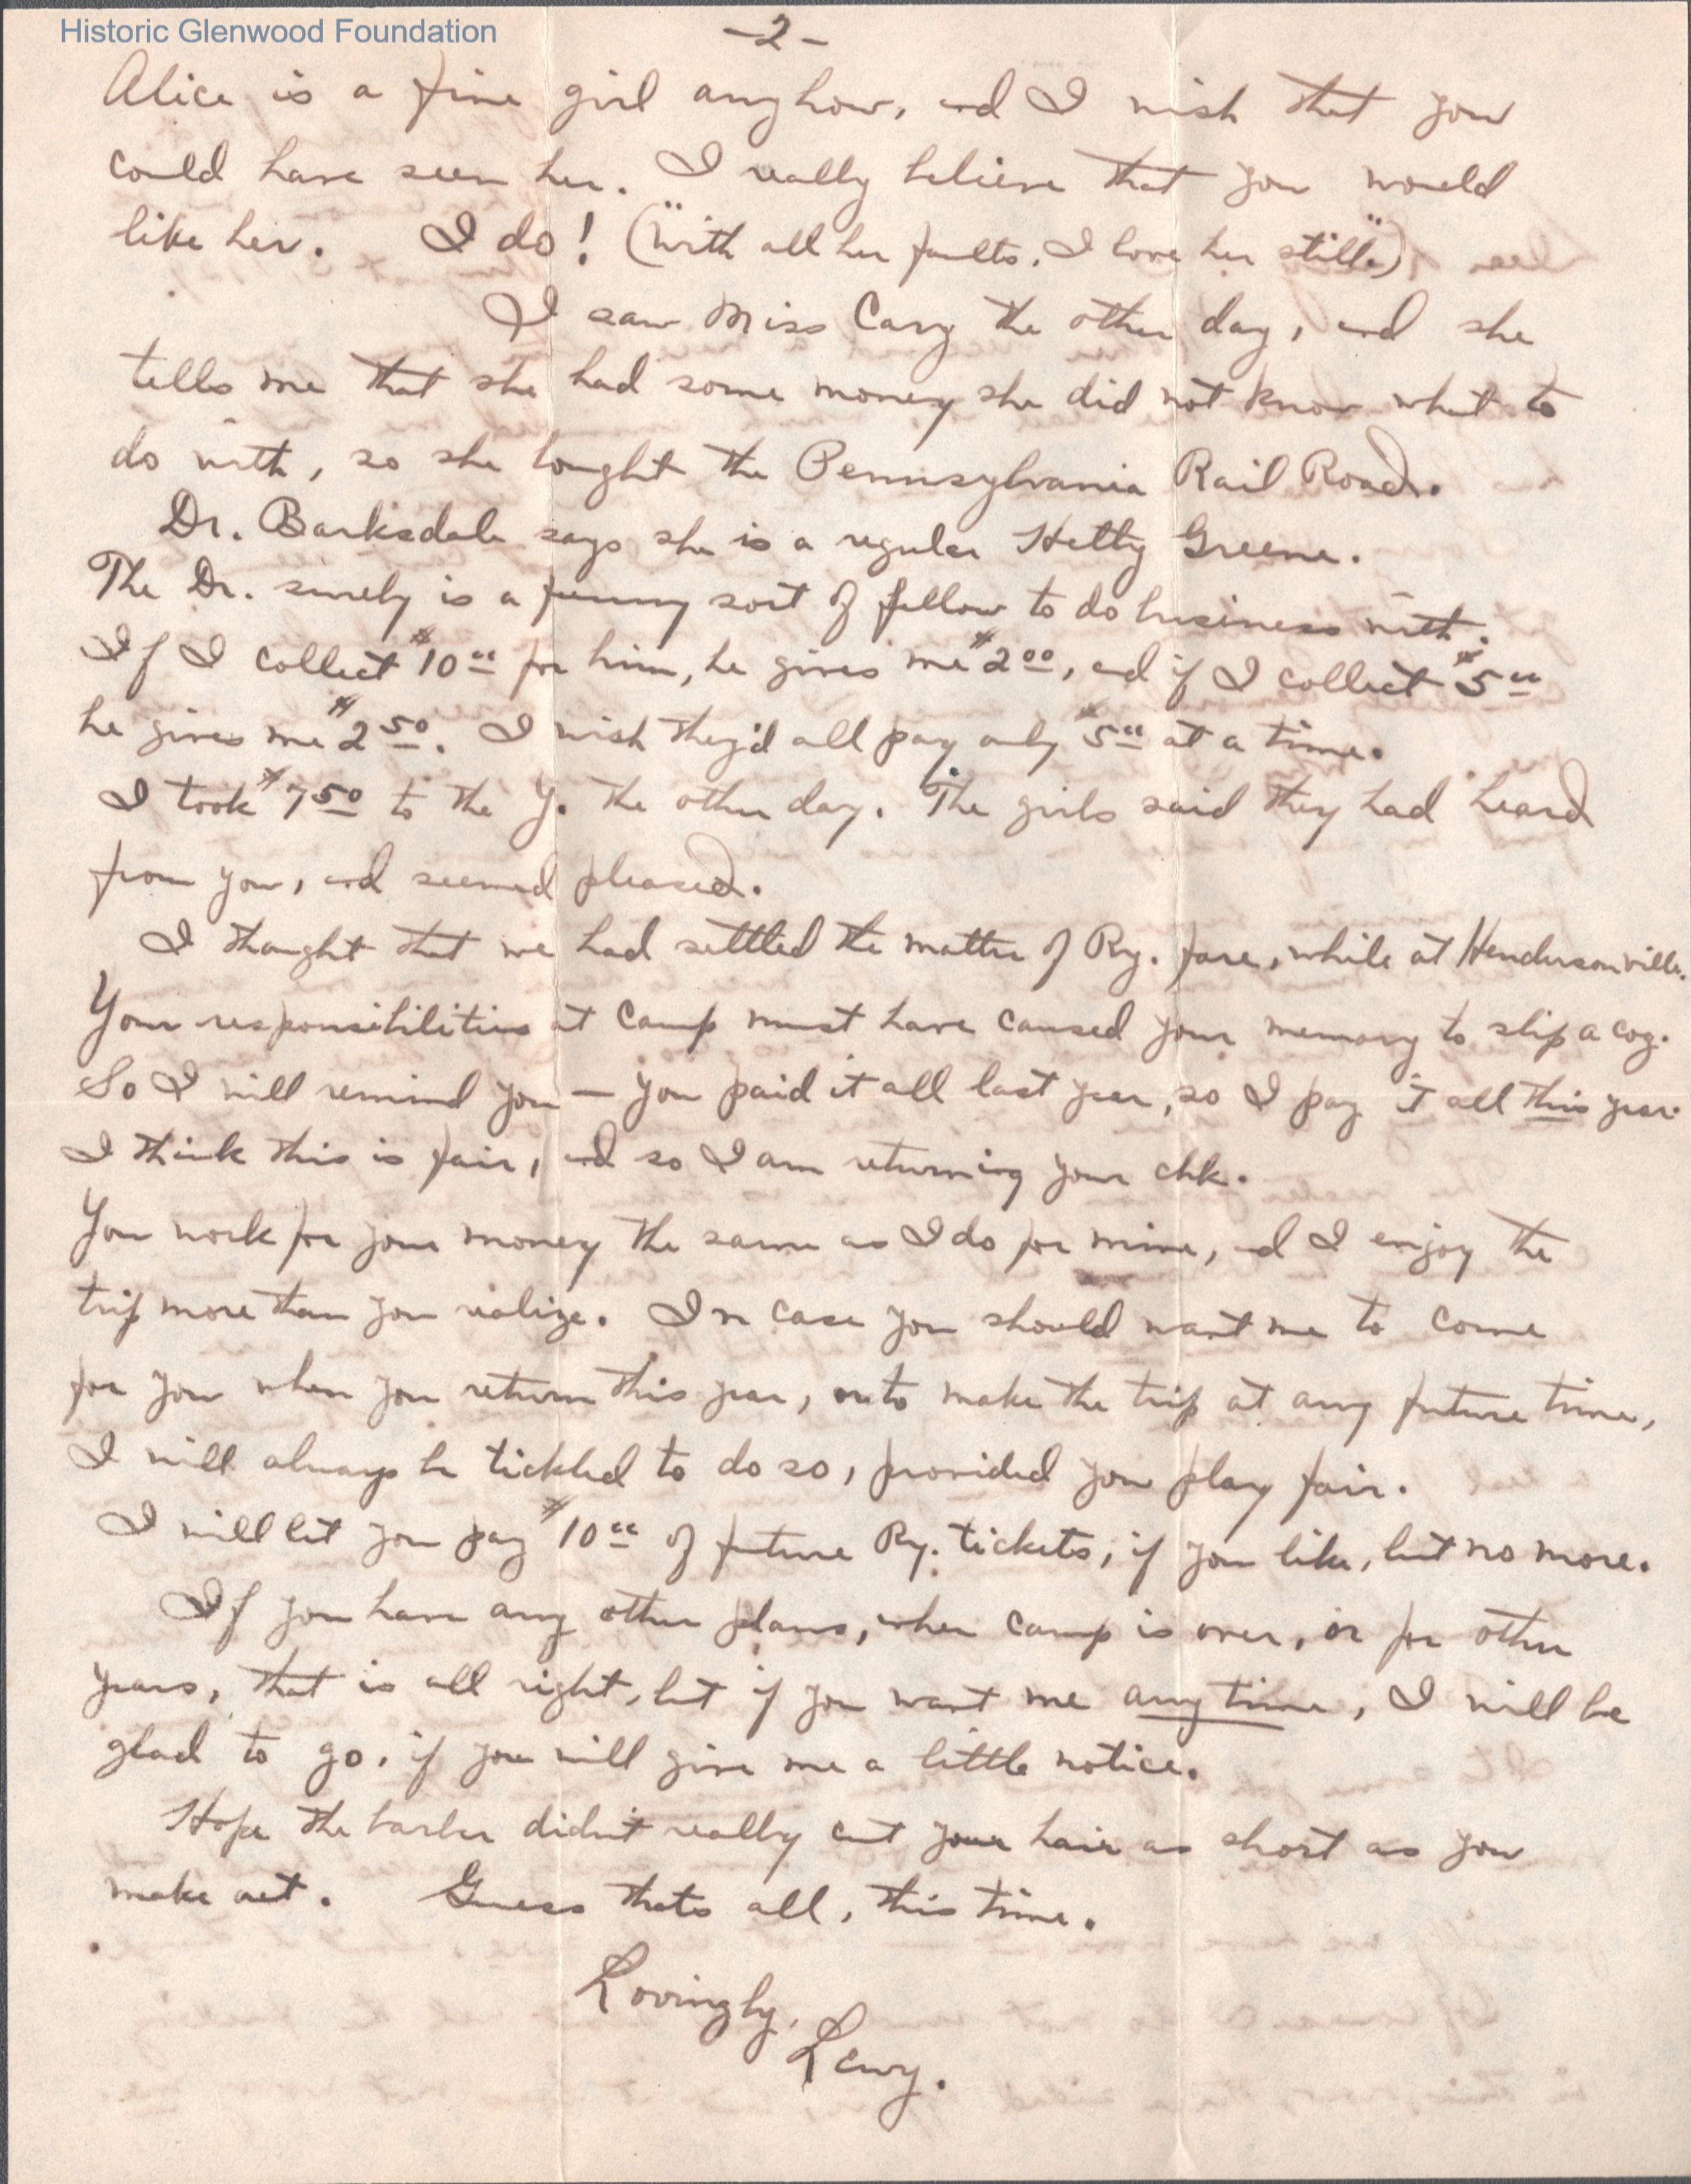 Historic Glenwood Foundation
-2-
Alice is a fine girl anyhow, and I wish that you
could have seen her. I really believe that you would
like her. I do! ("With all her faults, I love her still.")
I saw Miss Cary the other day, and she
tells me that she had some money she did not know what to
do with, so she bought the Pennsylvania Rail Road.
Dr. Barksdale says she is a regular Hetty Greene.
The Dr. surely is a funny sort of fellow to do business with.
If I collect $10.00 for him, he gives me $2.00, and if I collect $5.00
he gives me $2.50. I wish they'd all pay only $5.00 at a time.
I took $7.50 to the Y. the other day. The girls said they had heard
from you, and seemed pleased.
I thought that we had settled the matter of Ry. fare, while at Hendersonville.
Your responsibilities at camp must have caused your memory to slip a cog.
So I will remind you — you paid it all last year, so I pay it all this year.
I think this is fair, and so I am returning your chk.
You work for your money the same as I do for mine, and I enjoy the
trip more than you realize. In case you should want me to come
for you when you return this year, or to make the trip at any future time,
I will always be tickled to do so, provided you play fair.
I will let you pay $10.00 of future Ry. tickets, if you like, but no more.
If you have any other plans, when camp is over, or for other
years, that is all right, but if you want me any time, I will be
glad to go, if you will give me a little notice.
Hope the barber didn't really cut your hair as short as you
make out. Guess thats all, this time.
Lovingly,
Lewy.